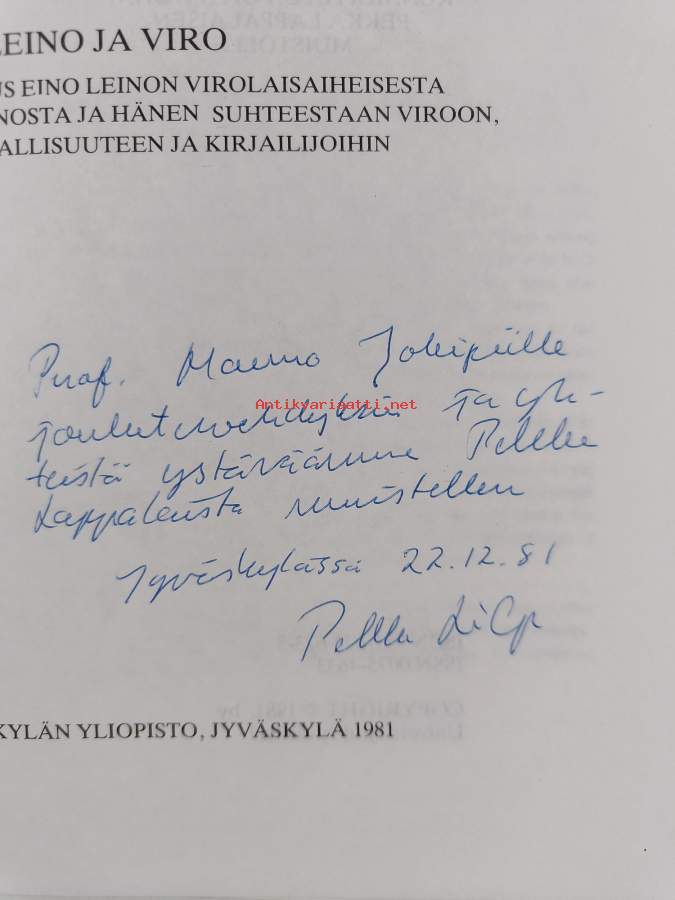 LEINO JA VIRO
US EINO LEINON VIROLAISAIHEISESTA
NOSTA JA HÄNEN SUHTEESTAAN VIROON,
ALLISUUTEEN JA KIRJAILIJOIHIN
Prof. Mauno Jokipiille
Antikvariaatti.net
ja yh-
teistä ystäväämme Pekka
Lappalaista muistellen
Jyväskylässä 22.12.81
Pekka Lilja
KYLÄN YLIOPISTO, JYVÄSKYLÄ 1981